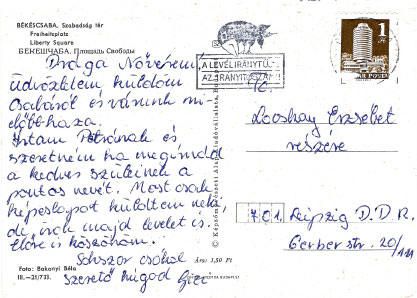 BÉKÉSCSABA, Szabadság tér
Freiheitsplatz
Liberty Square
БЕКЕШЧАБА, Площадь Свободы
Drága Nővérem,
üdvözletem küldöm
Csabáról és várunk mi-
előbb haza.
Írtam Petrának és
szeretném ha megírnád
a kedves szüleinek a
pontos nevét. Most csak
képeslapot küldtem neki
de, írok majd levelet is.
Előre is köszönöm.
Sokszor csókol
szerető húgod Gizi
Foto: Bakonyi Béla
III.—21/733.
Ára: 1,50 Ft
A LEVÉL IRÁNYTŰ-
AZ IRÁNYÍTÓSZÁM!
1 Ft
Looshay Erzsébet
részére
701. Leipzig D.D.R.
Gerber str. 20/111